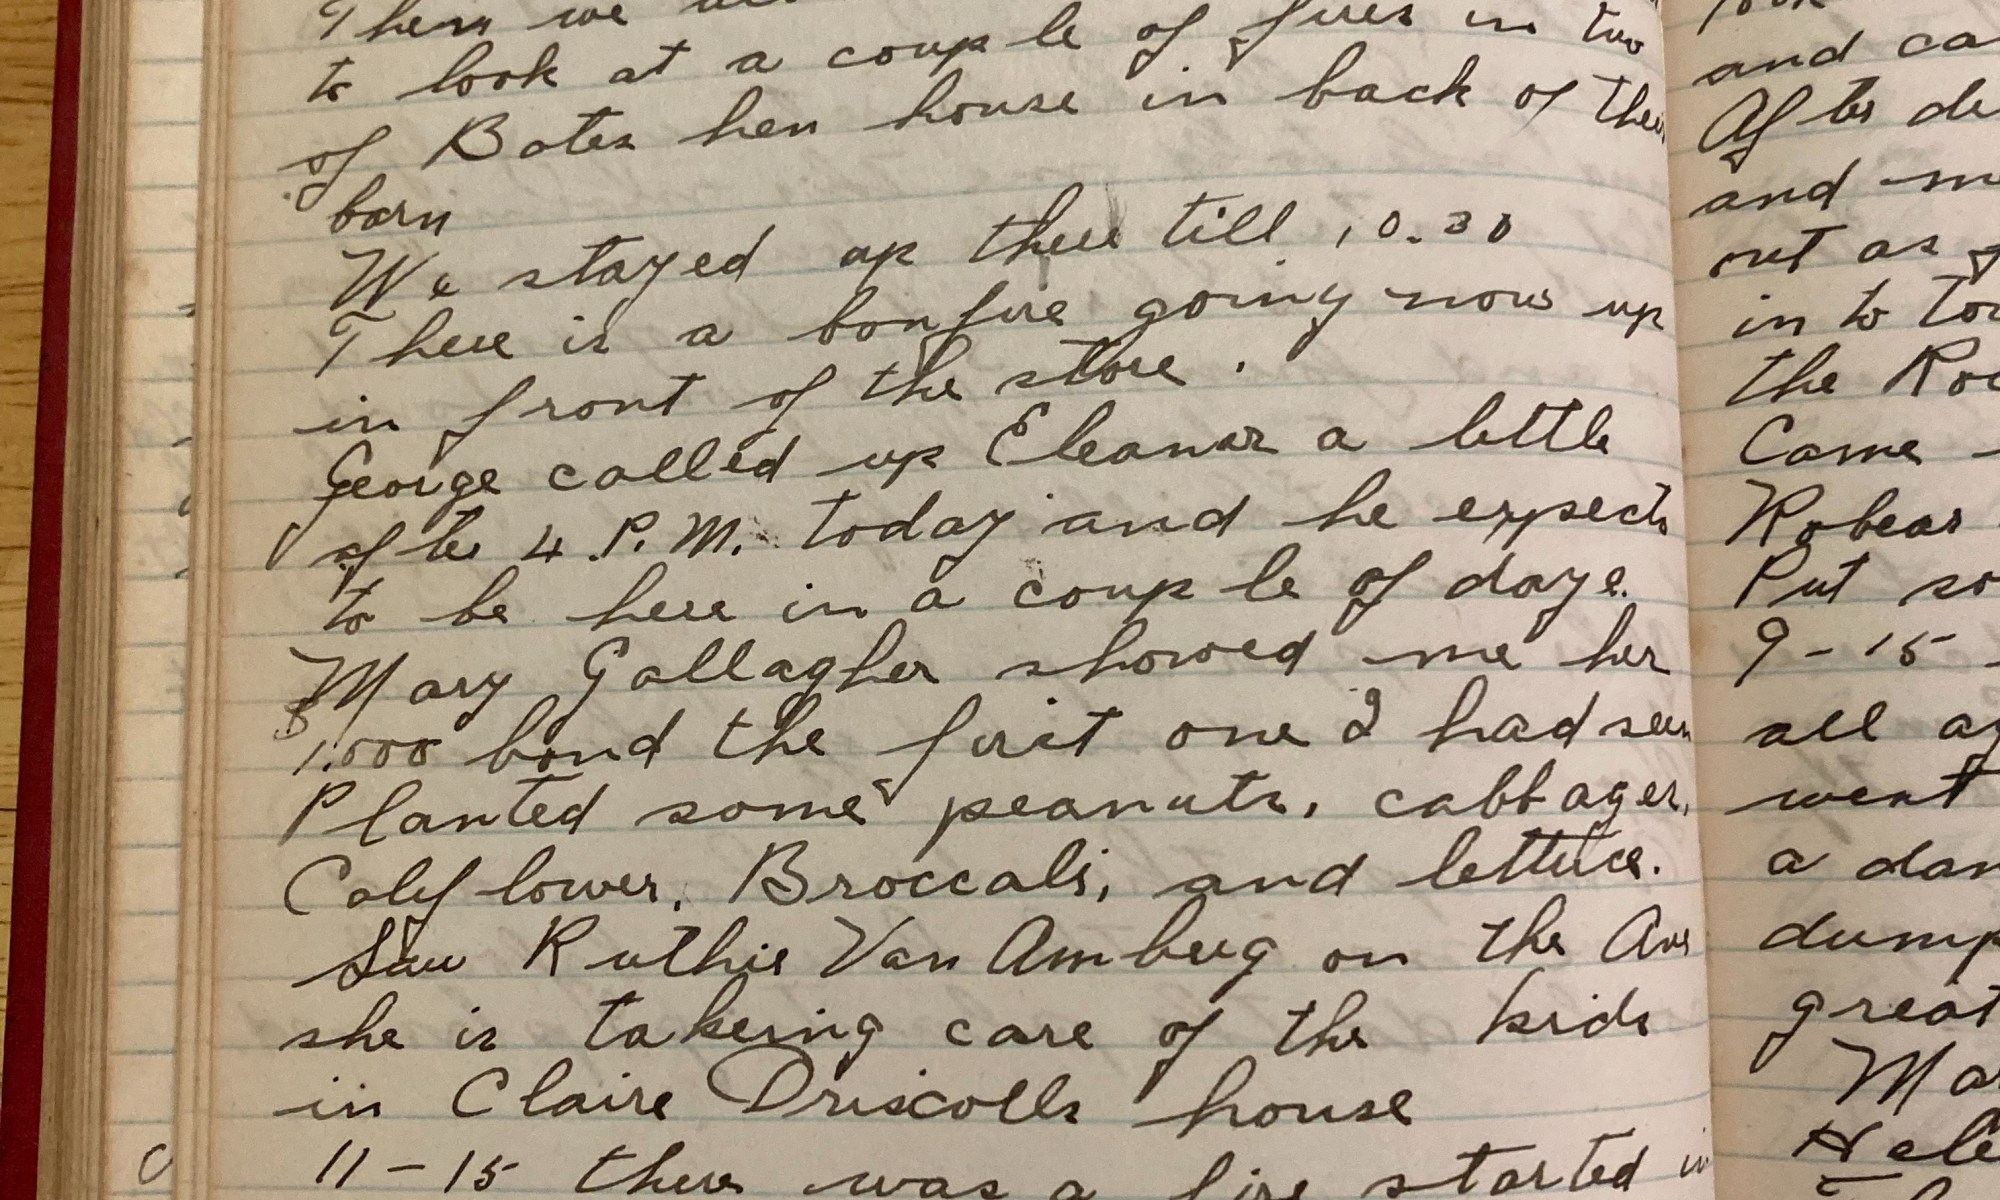 Then we
to look at a couple of fires in two
of Bates hen house in back of their
barn
We stayed up there till 10.30
There is a bonfire going now up
in front of the store.
George called up Eleanor a little
after 4 P.M. today and he expects
to be here in a couple of days.
Mary Gallagher showed me her
$1.000 bond the first one I had seen
Planted some peanuts, cabbages,
Colyflower, Broccoli, and lettuce.
Saw Ruthie Van Amberg on the Ave
she is takeing care of the kids
in Claire Driscolls house
11-15 there was a fire started in
and ca
After de
and m
out as
in to to
the Ro
Came
Robear
Put so
9-15
all a
went
a dan
dump
great
Ma
Hele